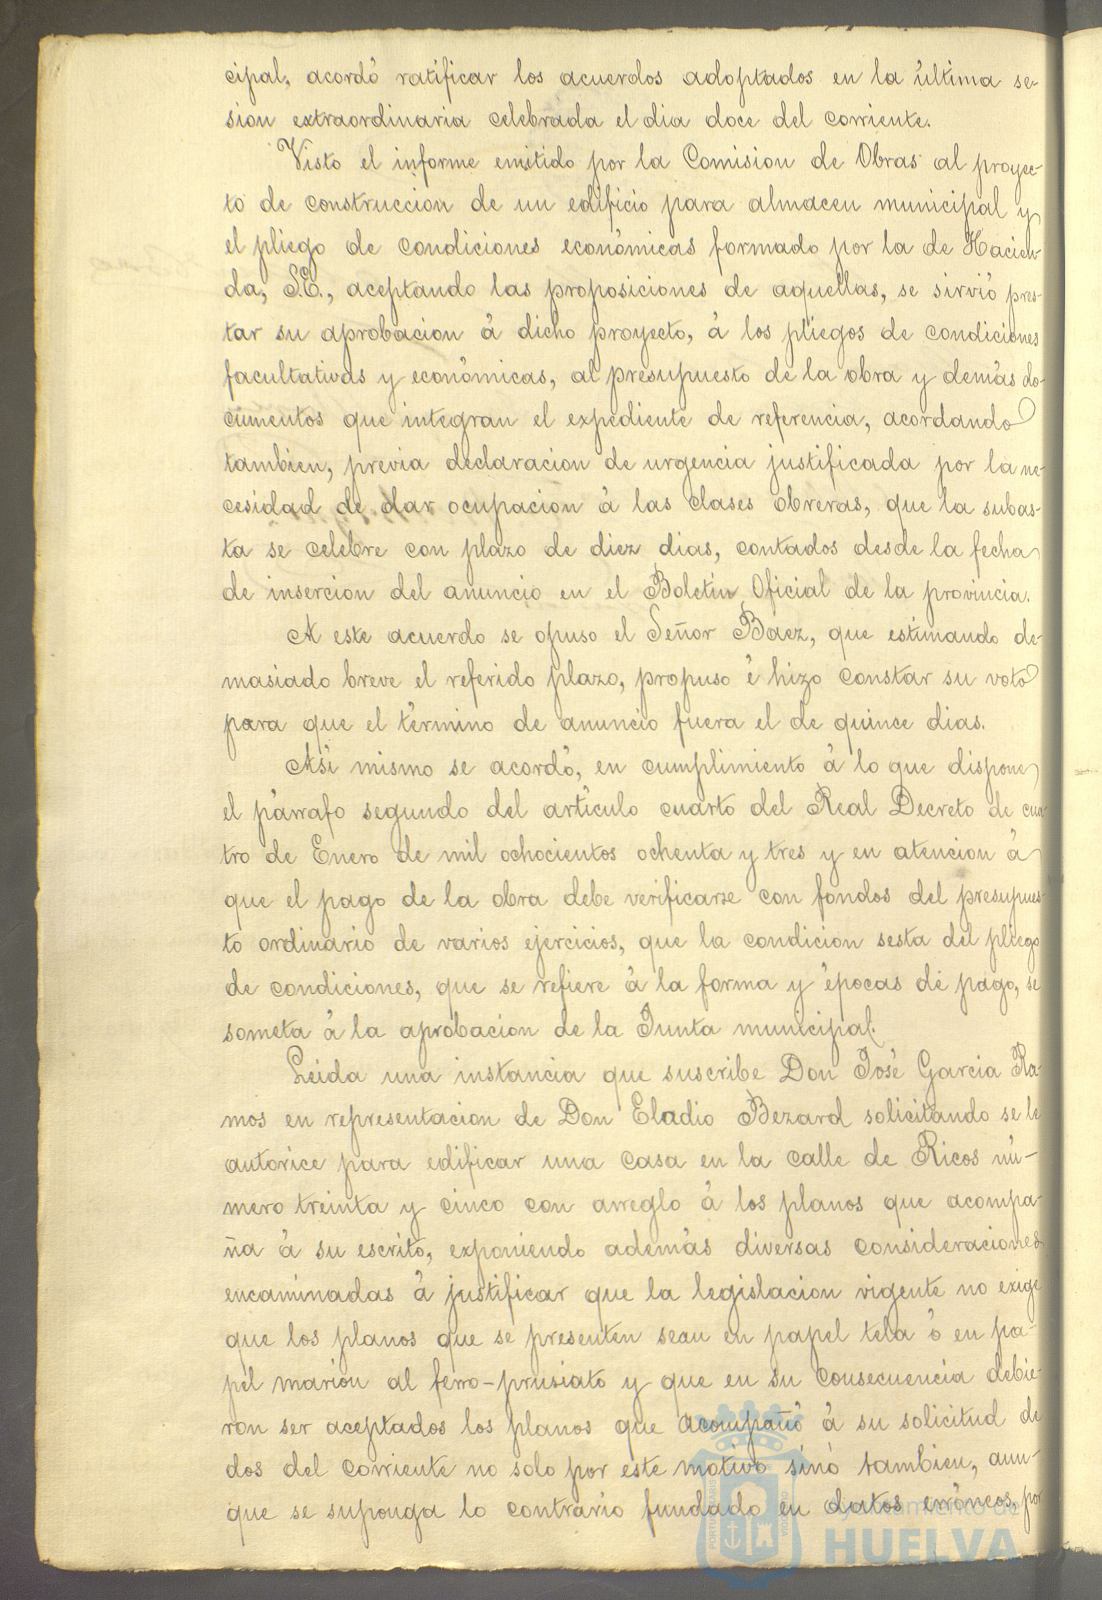 cipal, acordó ratificar los acuerdos adoptados en la última se-
sion extraordinaria celebrada el dia doce del corriente.
Visto el informe emitido por la Comision de Obras al proyec-
to de construccion de un edificio para almacen municipal y
el pliego de condiciones económicas formado por la de Hacien-
da, S.E., aceptando las proposiciones de aquellas, se sirvió pres-
tar su aprobacion á dicho proyecto, á los pliegos de condiciones
facultativas y económicas, al presupuesto de la obra y demás do-
cumentos que integran el expediente de referencia, acordando
tambien, previa declaracion de urgencia justificada por la ne-
cesidad de dar ocupacion á las clases obreras, que la subas-
ta se celebre con plazo de diez dias, contados desde la fecha
de insercion del anuncio en el Boletin Oficial de la provincia.
A este acuerdo se opuso el Señor Baez, que estimando de-
masiado breve el referido plazo, propuso é hizo constar su voto
para que el término de anuncio fuera el de quince dias.
Asi mismo se acordó, en cumplimiento á lo que dispone
el párrafo segundo del artículo cuarto del Real Decreto de cua-
tro de Enero de mil ochocientos ochenta y tres y en atencion á
que el pago de la obra debe verificarse con fondos del presupues-
to ordinario de varios ejercicios, que la condicion sesta del pliego
de condiciones, que se refiere á la forma y épocas de pago, se
someta á la aprobacion de la Junta municipal.
Leida una instancia que suscribe Don José Garcia Ra-
mos en representacion de Don Eladio Bezard solicitando se le
autorice para edificar una casa en la calle de Ricos nú-
mero treinta y cinco con arreglo á los planos que acompa-
ña á su escrito, exponiendo además diversas consideraciones
encaminadas á justificar que la legislacion vigente no exige
que los planos que se presenten sean en papel tela ó en pa-
pel marion al ferro-prusiato y que en su consecuencia debie-
ron ser aceptados los planos que acompañó á su solicitud de
dos del corriente no solo por este motivo sinó tambien, aun-
que se suponga lo contrario fundado en datos erróneos, por
Ayuntamiento de
HUELVA